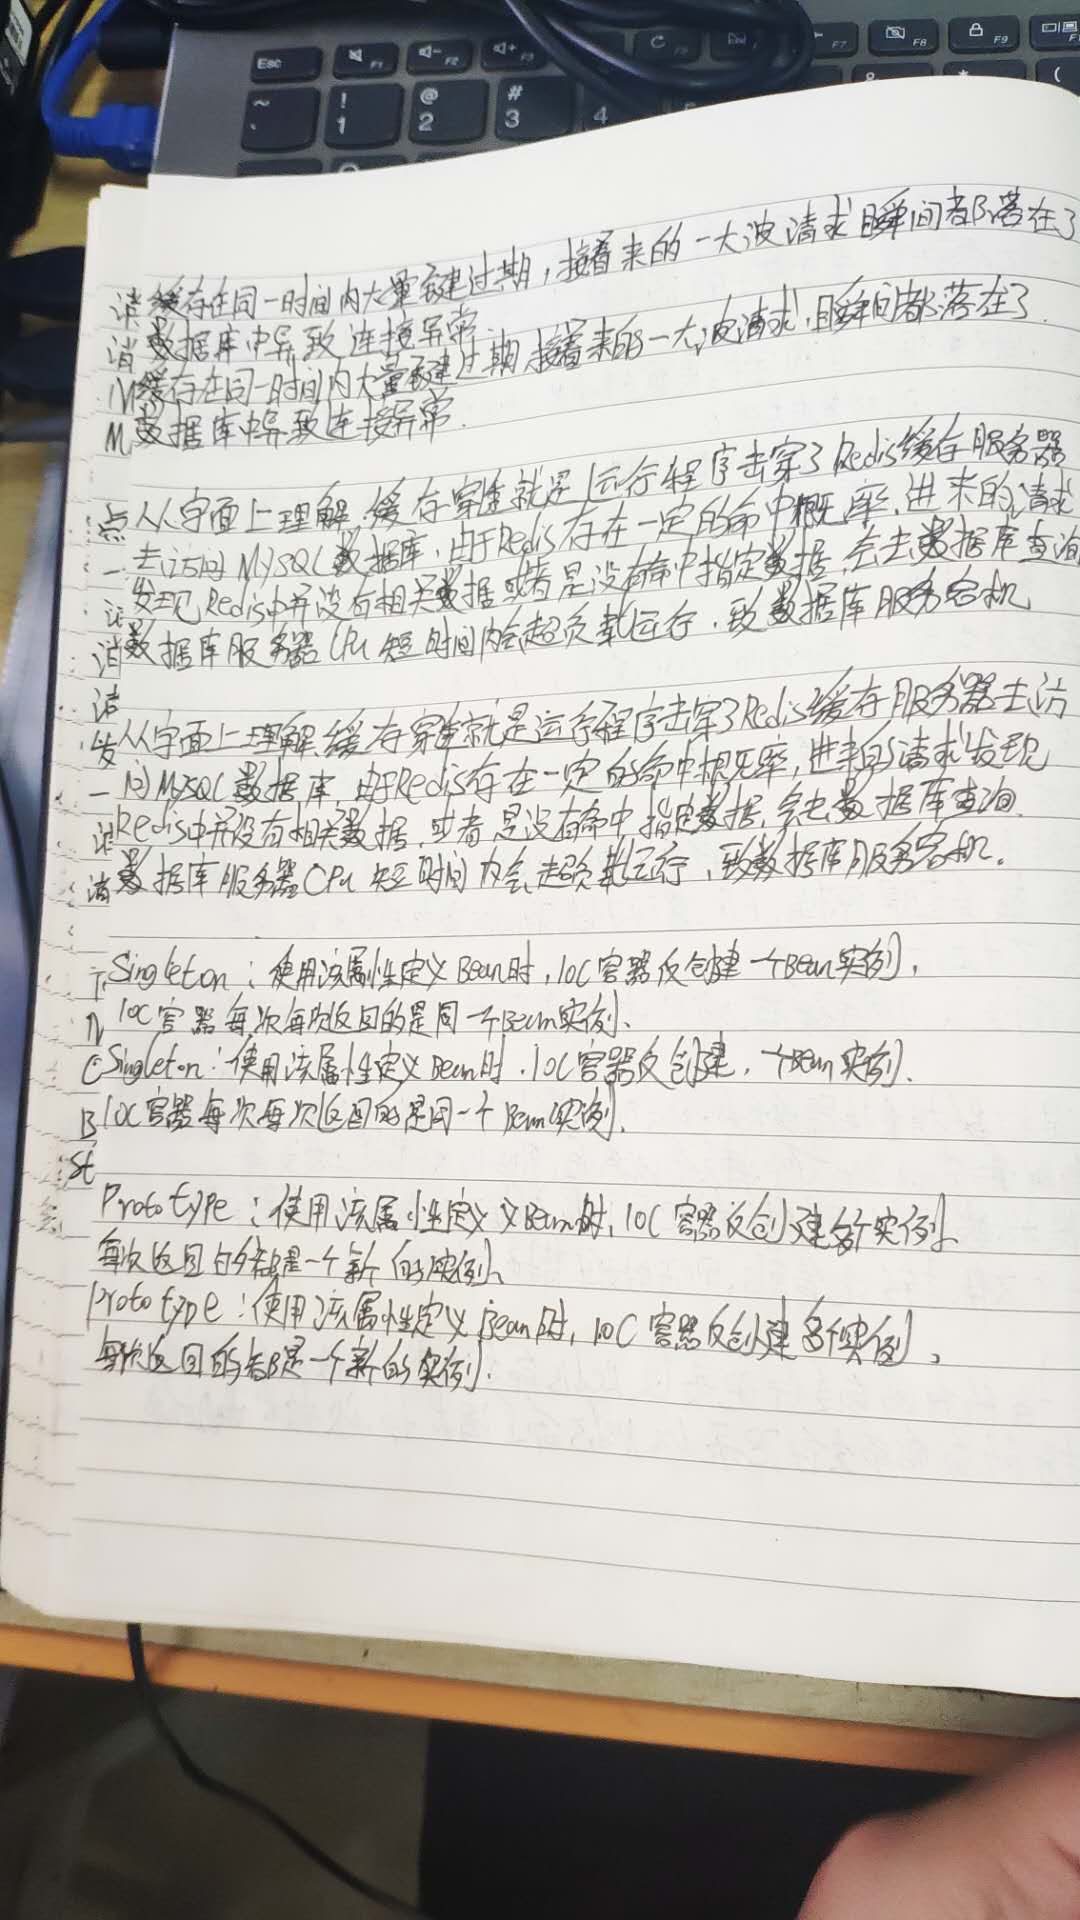 Esc F1 F2 F3 F7 F8 F9
~ ` ! 1 @ 2 # 3 4 * (
缓存在同一时间内大量键过期,接着来的一大波请求瞬间都落在了
数据库中导致连接异常
缓存在同一时间内大量键过期,接着来的一大波请求,瞬间都落在了
数据库中导致连接异常.
从字面上理解,缓存穿透就是运行程序击穿了Redis缓存服务器
去访问MySQL数据库,由于Redis存在一定的命中概率,进来的请求
发现Redis中并没有相关数据或者是没有命中指定数据,会去数据库查询
数据库服务器CPU短时间内会超负载运行,致数据库服务宕机
从字面上理解,缓存穿透就是运行程序击穿了Redis缓存服务器去访
问MySQL数据库,由于Redis存在一定的命中概率,进来的请求发现
Redis中并没有相关数据,或者是没有命中指定数据,会去数据库查询.
数据库服务器CPU短时间内会超负载运行,致数据库服务宕机.
Singleton:使用该属性定义Bean时,IOC容器仅创建一个Bean实例,
IOC容器每次每次返回的是同一个Bean实例、
Singleton:使用该属性定义Bean时,IOC容器仅创建,一个Bean实例、
IOC容器每次每次返回的是同一个Bean实例,
Prototype:使用该属性定义义Bean时,IOC容器仅创建多个实例、
每次返回的都是一个新的实例、
Prototype:使用该属性定义Bean时,IOC容器仅创建多个实例、
每次返回的都是一个新的实例.